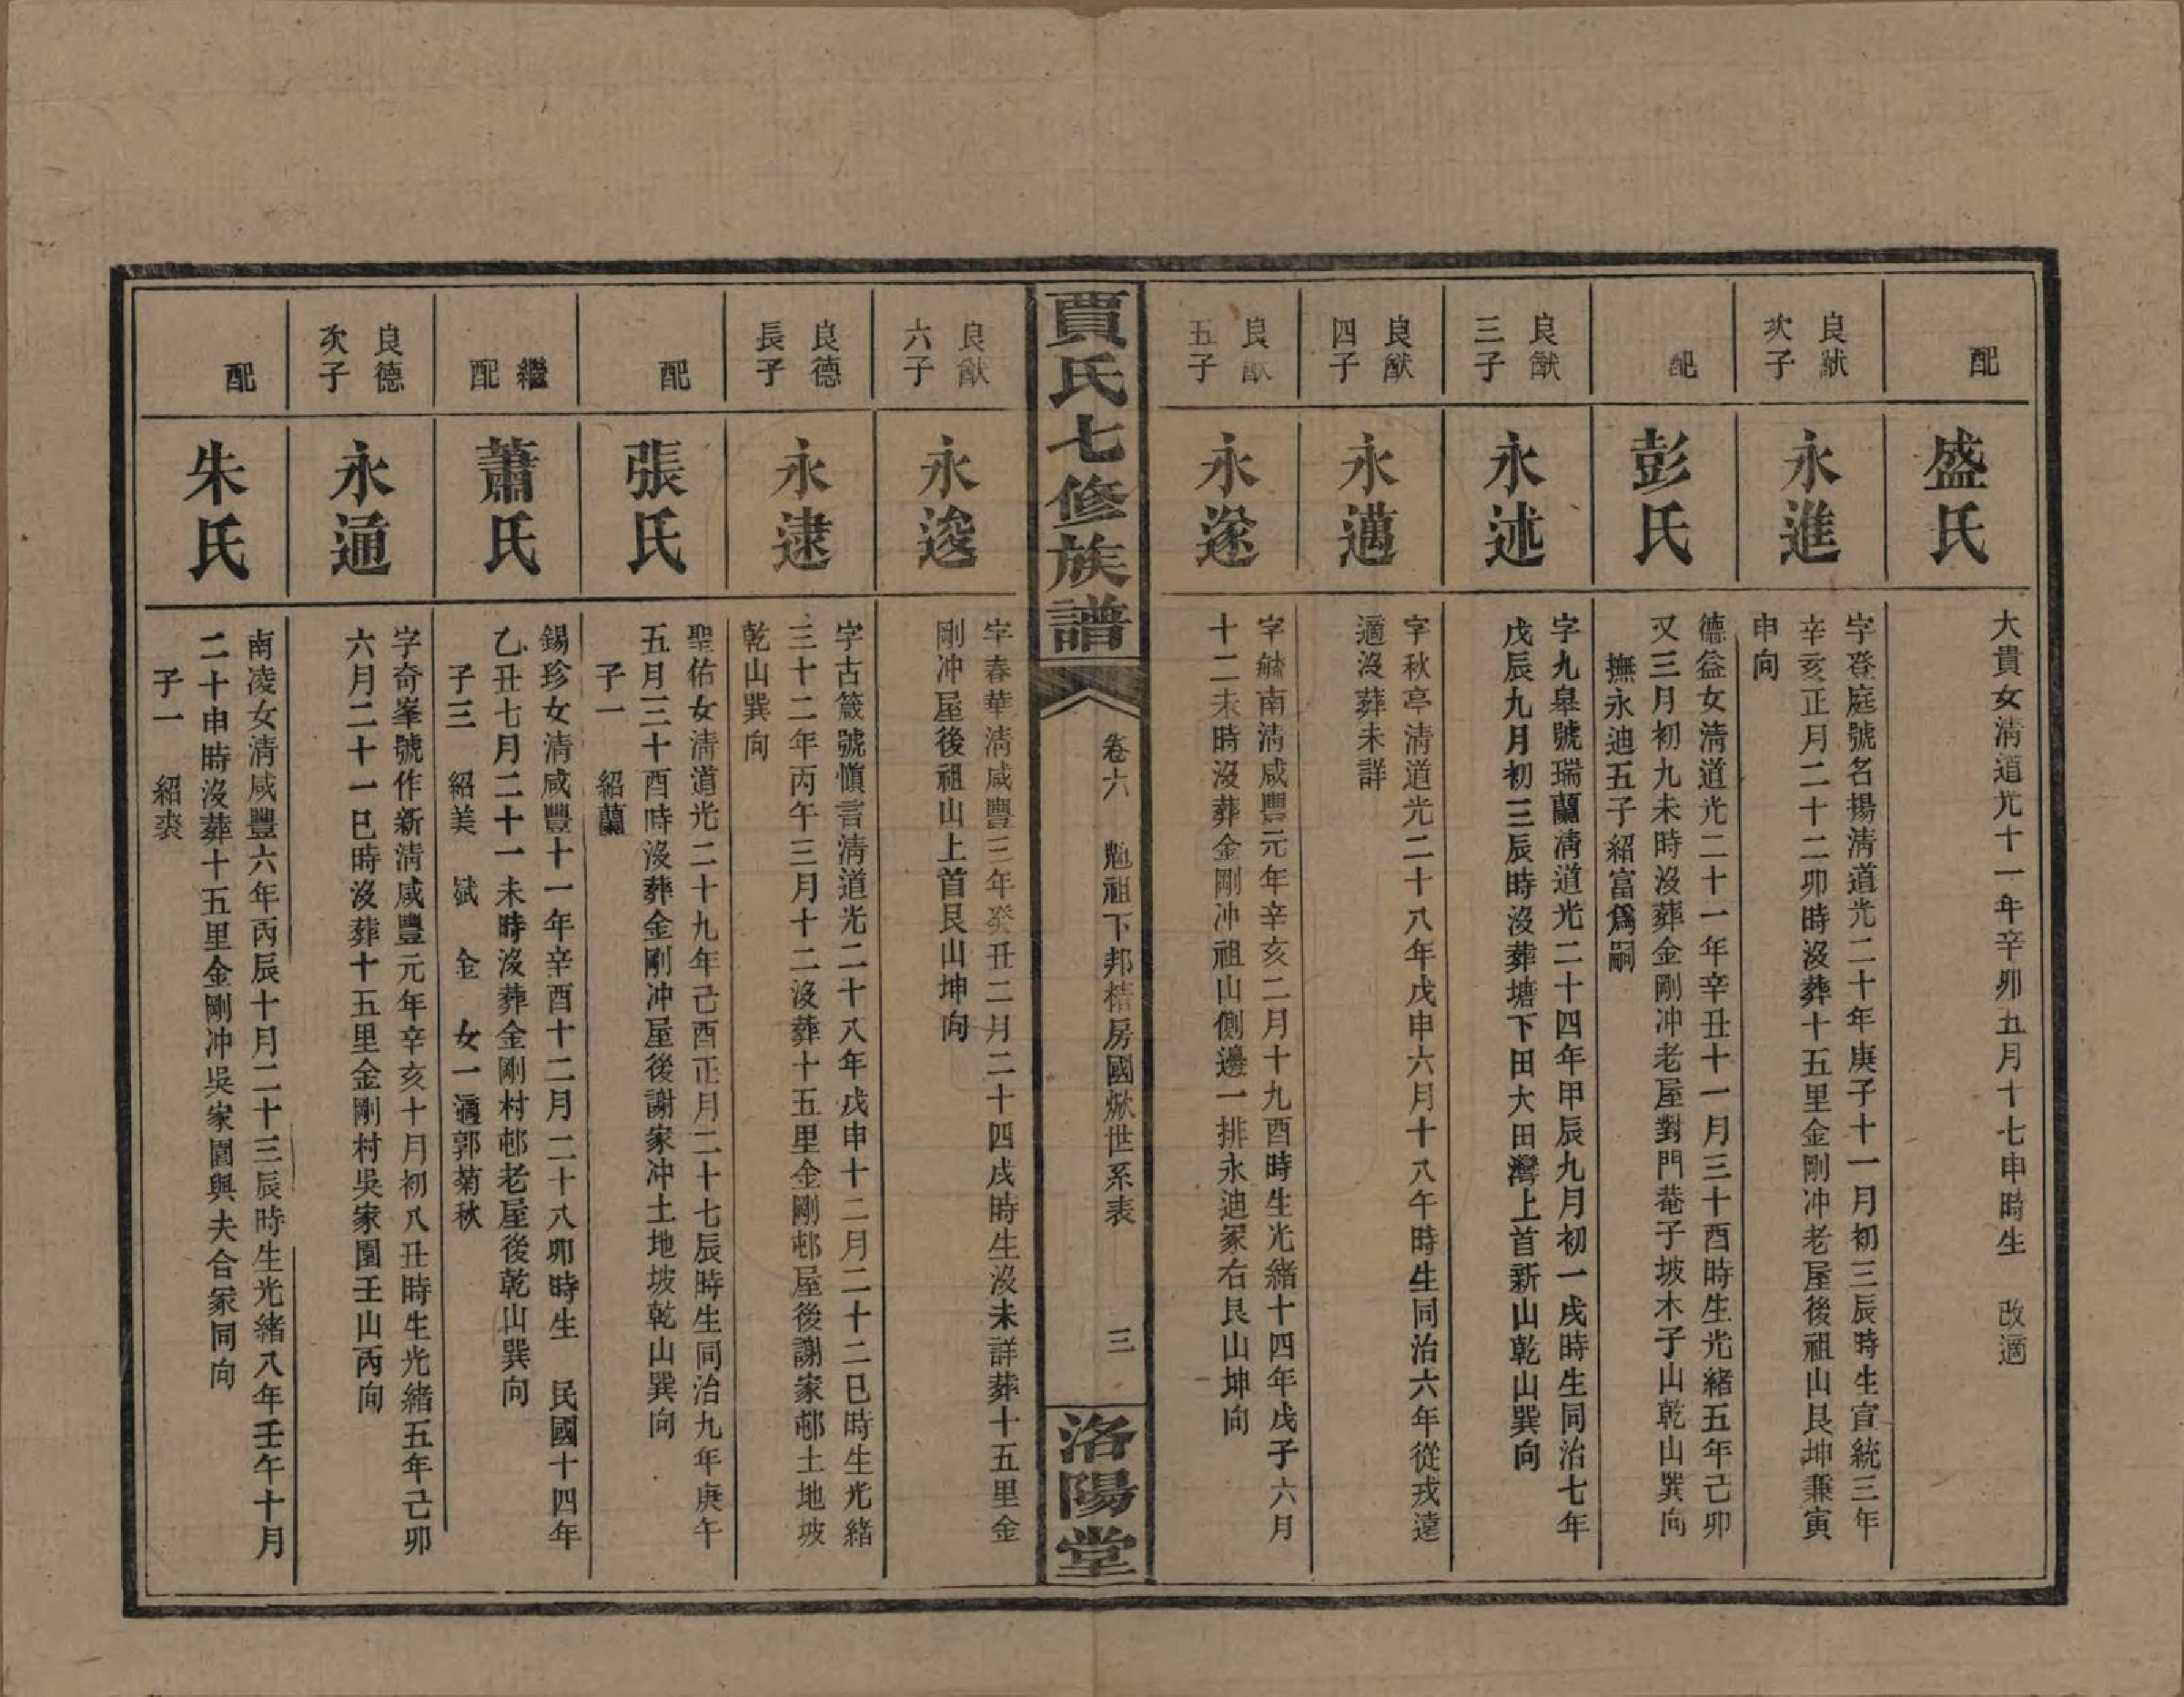 配
盛氏
大貴女淸道光十一年辛卯五月十七申時生 改適
良猷
次子
永進
字登庭號名揚淸道光二十年庚子十一月初三辰時生宣統三年
辛亥正月二十二卯時沒葬十五里金剛冲老屋後祖山艮坤兼寅
申向
配
彭氏
德益女淸道光二十一年辛丑十一月三十酉時生光緒五年己卯
又三月初九未時沒葬金剛冲老屋對門菴子坡木子山乾山巽向
撫永迪五子紹富爲嗣
良猷
三子
永述
字九臯號瑞蘭淸道光二十四年甲辰九月初一戌時生同治七年
戊辰九月初三辰時沒葬塘下田大田灣上首新山乾山巽向
良猷
四子
永邁
字秋亭淸道光二十八年戊申六月十八午時生同治六年從戎遠
適沒葬未詳
良猷
五子
永遂
字毓南淸咸豐元年辛亥二月十九酉時生光緒十四年戊子六月
十二未時沒葬金剛冲祖山側邊一排永迪冢右艮山坤向
賈氏七修族譜
卷六 魁祖下邦楮房國焮世系表 三
洛陽堂
良猷
六子
永逡
字春華淸咸豐三年癸丑二月二十四戌時生沒未詳葬十五里金
剛冲屋後祖山上首艮山坤向
良德
長子
永逮
字古箴號愼言淸道光二十八年戊申十二月二十二巳時生光緒
三十二年丙午三月十二沒葬十五里金剛邨屋後謝家邨土地坡
乾山巽向
配
張氏
聖佑女淸道光二十九年己酉正月二十七辰時生同治九年庚午
五月三十酉時沒葬金剛冲屋後謝家冲土地坡乾山巽向
子一 紹蘭
繼
配
蕭氏
錫珍女淸咸豐十一年辛酉十二月二十八卯時生 民國十四年
乙丑七月二十一未時沒葬金剛村邨老屋後乾山巽向
子三 紹美 斌 金 女一適郭菊秋
良德
次子
永通
字奇峯號作新淸咸豐元年辛亥十月初八丑時生光緒五年己卯
六月二十一巳時沒葬十五里金剛村吳家園壬山丙向
配
朱氏
南凌女淸咸豐六年丙辰十月二十三辰時生光緒八年壬午十月
二十申時沒葬十五里金剛冲吳家園與夫合冢同向
子一 紹裘